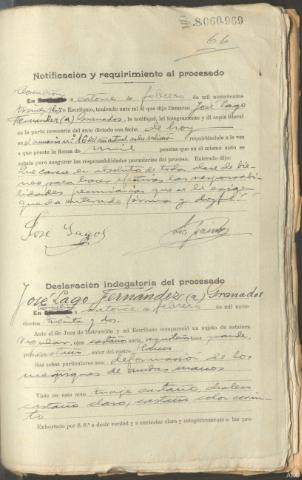 8.060.969
66
Notificación y requirimiento al procesado
En catorce de febrero de mil novecientos
yo Escribano, teniendo ante mí al que dijo llamarse José Lago
Fernández (a) Granados, le notifiqué, leí íntegramente y di copia literal
en la parte necesaria del auto dictado con fecha de hoy
en el sumario n.º requiriéndole a la vez
a que preste la fianza de mil pesetas que en el mismo auto se
señala para asegurar las responsabilidades pecuniarias del proceso. Enterado dijo:
Que carece en absoluto de toda clase de bie-
nes para hacer efectivas las responsabi-
lidades pecuniarias que se le exigen
queda enterado firma y doy fé
José Lago
Declaración indagatoria del procesado
José Lago Fernández (a) Granados
En catorce de febrero de mil nove-
cientos treinta y dos.
Ante el Sr. Juez de Instrucción y mi Escribano compareció un sujeto de estatura
regular, ojos castaño nariz aguileña grande
color del rostro
Sus señas particulares son: deformación de los
meñiques de ambas manos
Viste en este acto traje castaño chaleco
castaño claro, zapatos color
Exhortado por S. S.ª a decir verdad y a contestar clara y categóricamente a las pre-